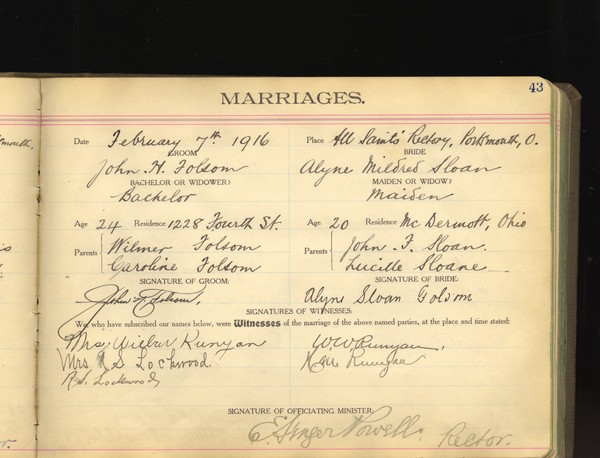 43
MARRIAGES.
Date February 7th 1916 Place All Saints' Rectory, Portsmouth, O.
GROOM BRIDE
John H. Folsom Alyne Mildred Sloan
BACHELOR OR WIDOWER? MAIDEN OR WIDOW?
Bachelor Maiden
Age 24 Residence 1228 Fourth St. Age 20 Residence McDermott, Ohio
Parents Wilmer Folsom Parents John F. Sloan.
Caroline Folsom Lucille Sloane
SIGNATURE OF GROOM: SIGNATURE OF BRIDE:
John H. Folsom, Alyne Sloan Golsom
SIGNATURES OF WITNESSES:
We, who have subscribed our names below, were Witnesses of the marriage of the above named parties, at the place and time stated:
Mrs Wilbur Runyan W W Runyan,
Mrs R S Lockwood. Runyan
R. S. Lockwood
SIGNATURE OF OFFICIATING MINISTER:
E. Ainger Powell. Rector.